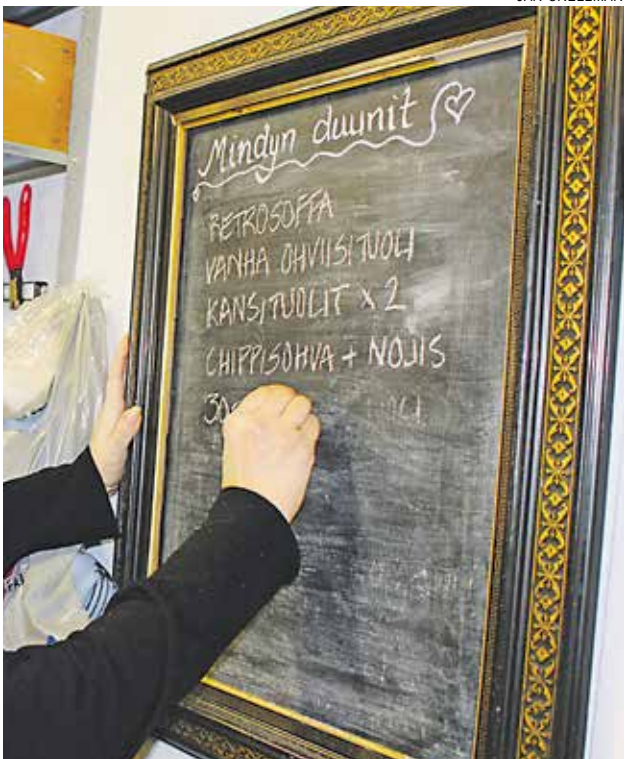 Mindyn duunit
RETROSOFFA
VANHA OHVIISITUOLI
KANSITUOLIT x 2
CHIPPISOHVA + NOJIS